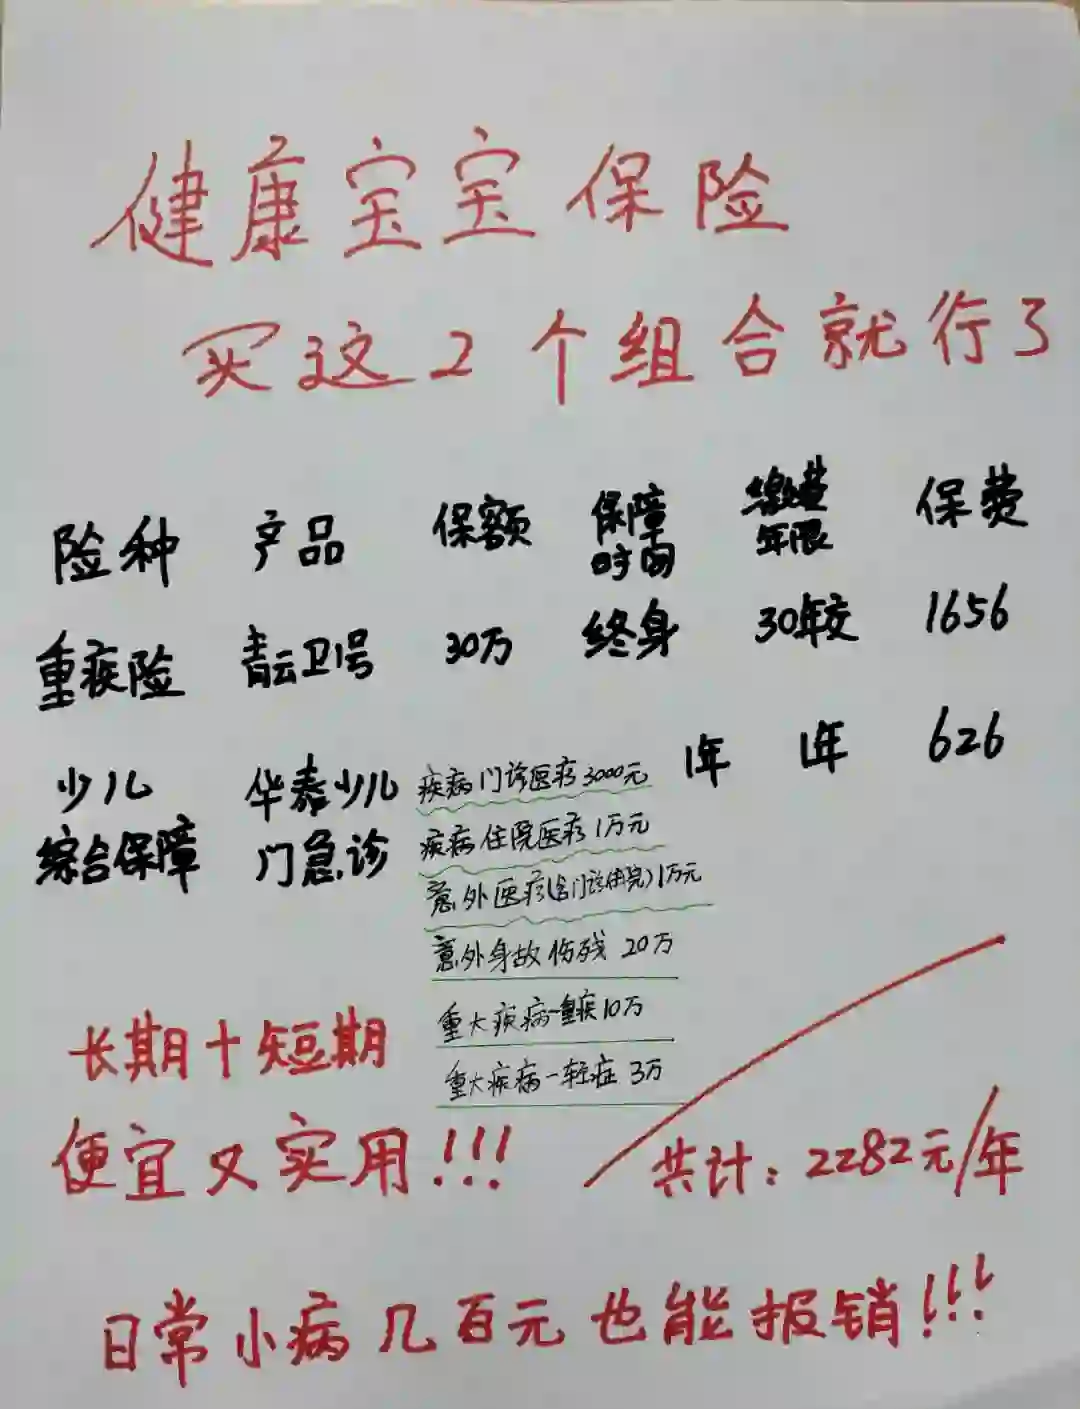 健康宝宝保险
买这2个组合就行了
险种 产品 保额 保障时间 缴费年限 保费
重疾险 青云卫1号 30万 终身 30年交 1656
少儿综合保障 华泰少儿门急诊 疾病门诊医疗3000元 1年 1年 626
疾病住院医疗1万元
意外医疗(含门诊住院)1万元
意外身故伤残 20万
重大疾病-重疾10万
重大疾病-轻症 3万
长期+短期
便宜又实用!!!
共计:2282元/年
日常小病几百元也能报销!!!